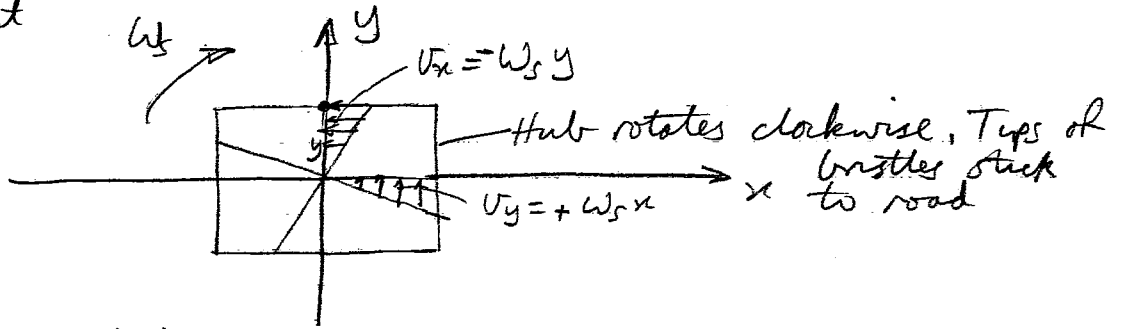 t
ωs
y
vx = -ωs y
Hub rotates clockwise, Tips of
bristles stick
to road
y
x
vy = + ωs x